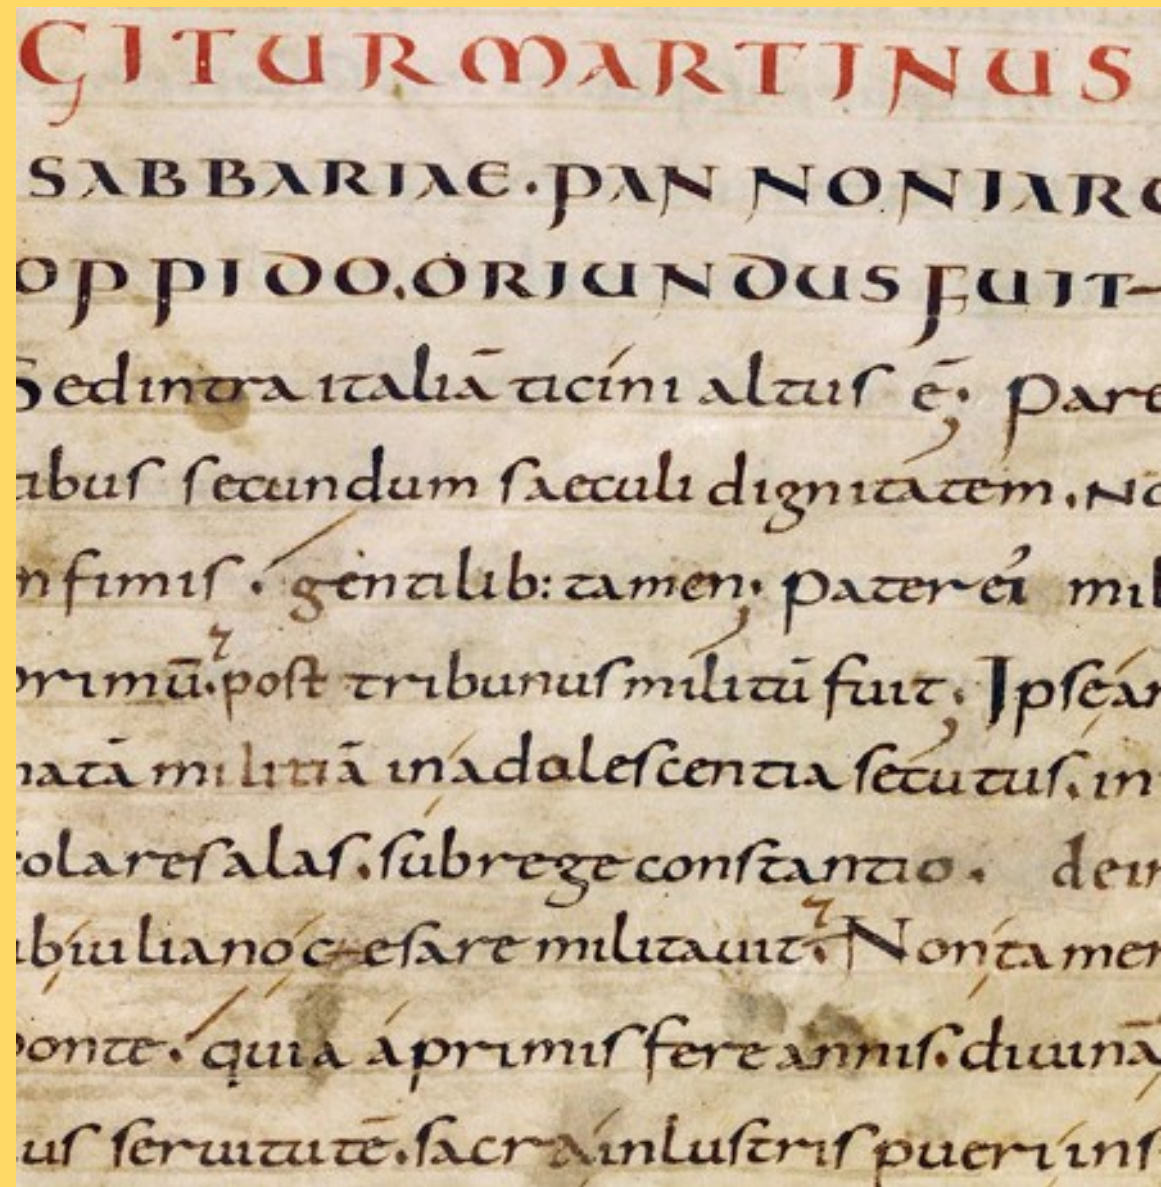 GITUR MARTINUS
SABBARIAE. PANNONIARO
OPPIDO. ORIUNDUS FUIT
Sed intra italiā ticini altus ē; Pare
tibus secundum saeculi dignitatem. No
nfimis. gentilib: tamen; Pater ei' mil
primū. post tribunus militū fuit; Ipse ar
matā militiā in adolescentia secutus. in
colares alas. sub rege constantio. dein
ub iuliano cesare militauit. Non tamen
ponte. quia a primis fere annis. diuinā
us seruitutē. sacra inlustris pueri ins